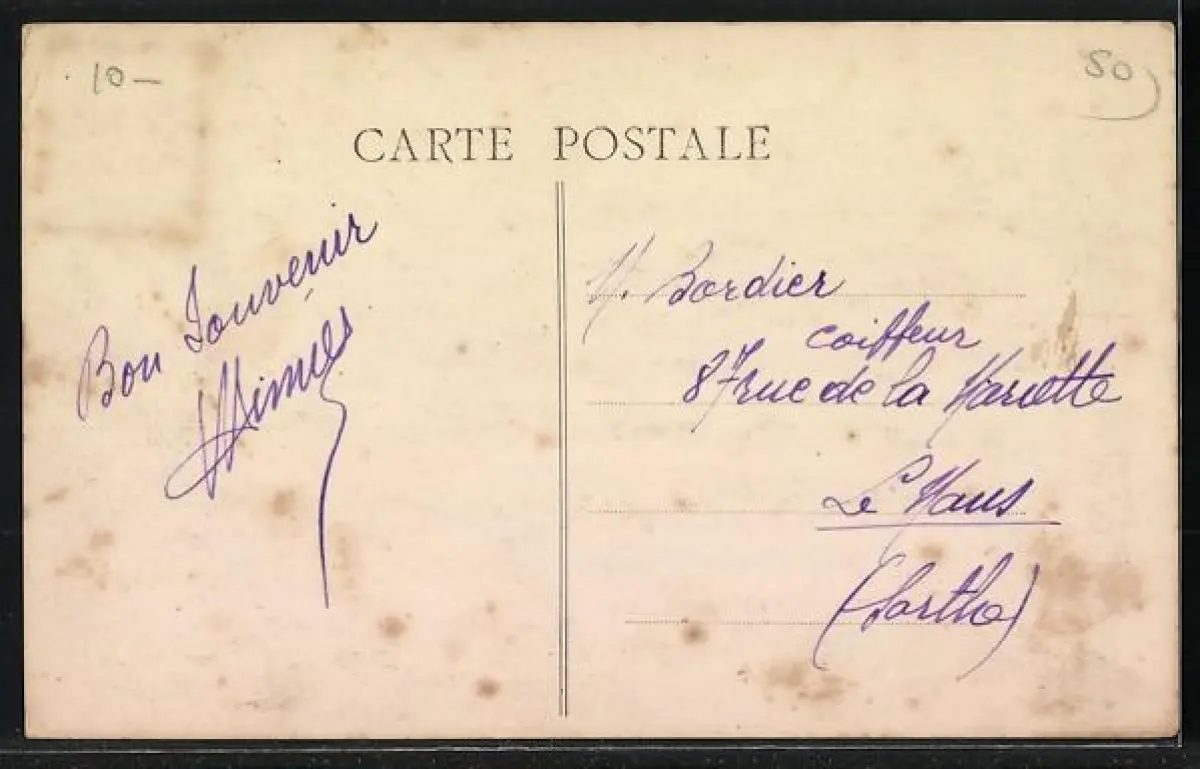 10—
50
CARTE POSTALE
Bon Souvenir
M. Bordier
coiffeur
87 rue de la Mariette
Le Mans
(Sarthe)